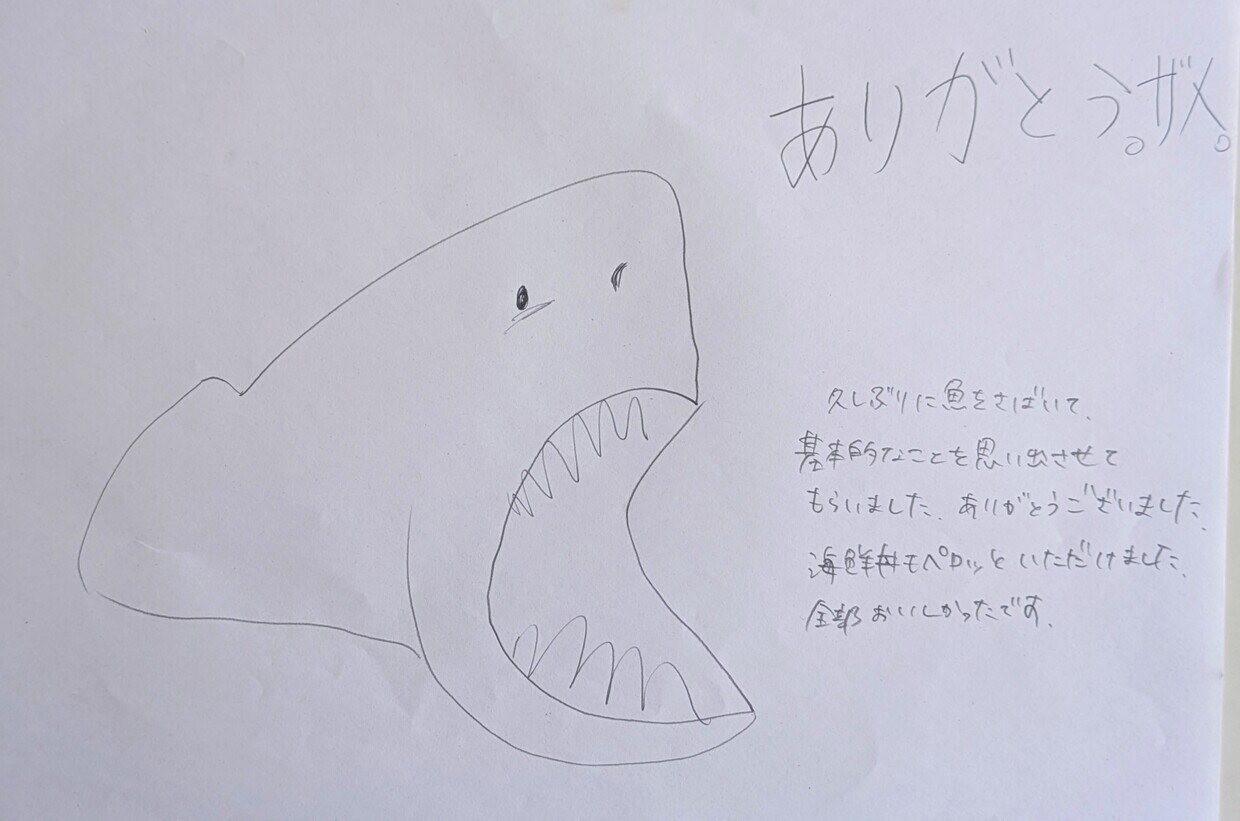 ありがとう。ザメ。
久しぶりに魚をさばいて、
基本的なことを思い出させて
もらいました。ありがとうございました。
海鮮丼もペロッといただけました。
全部おいしかったです。